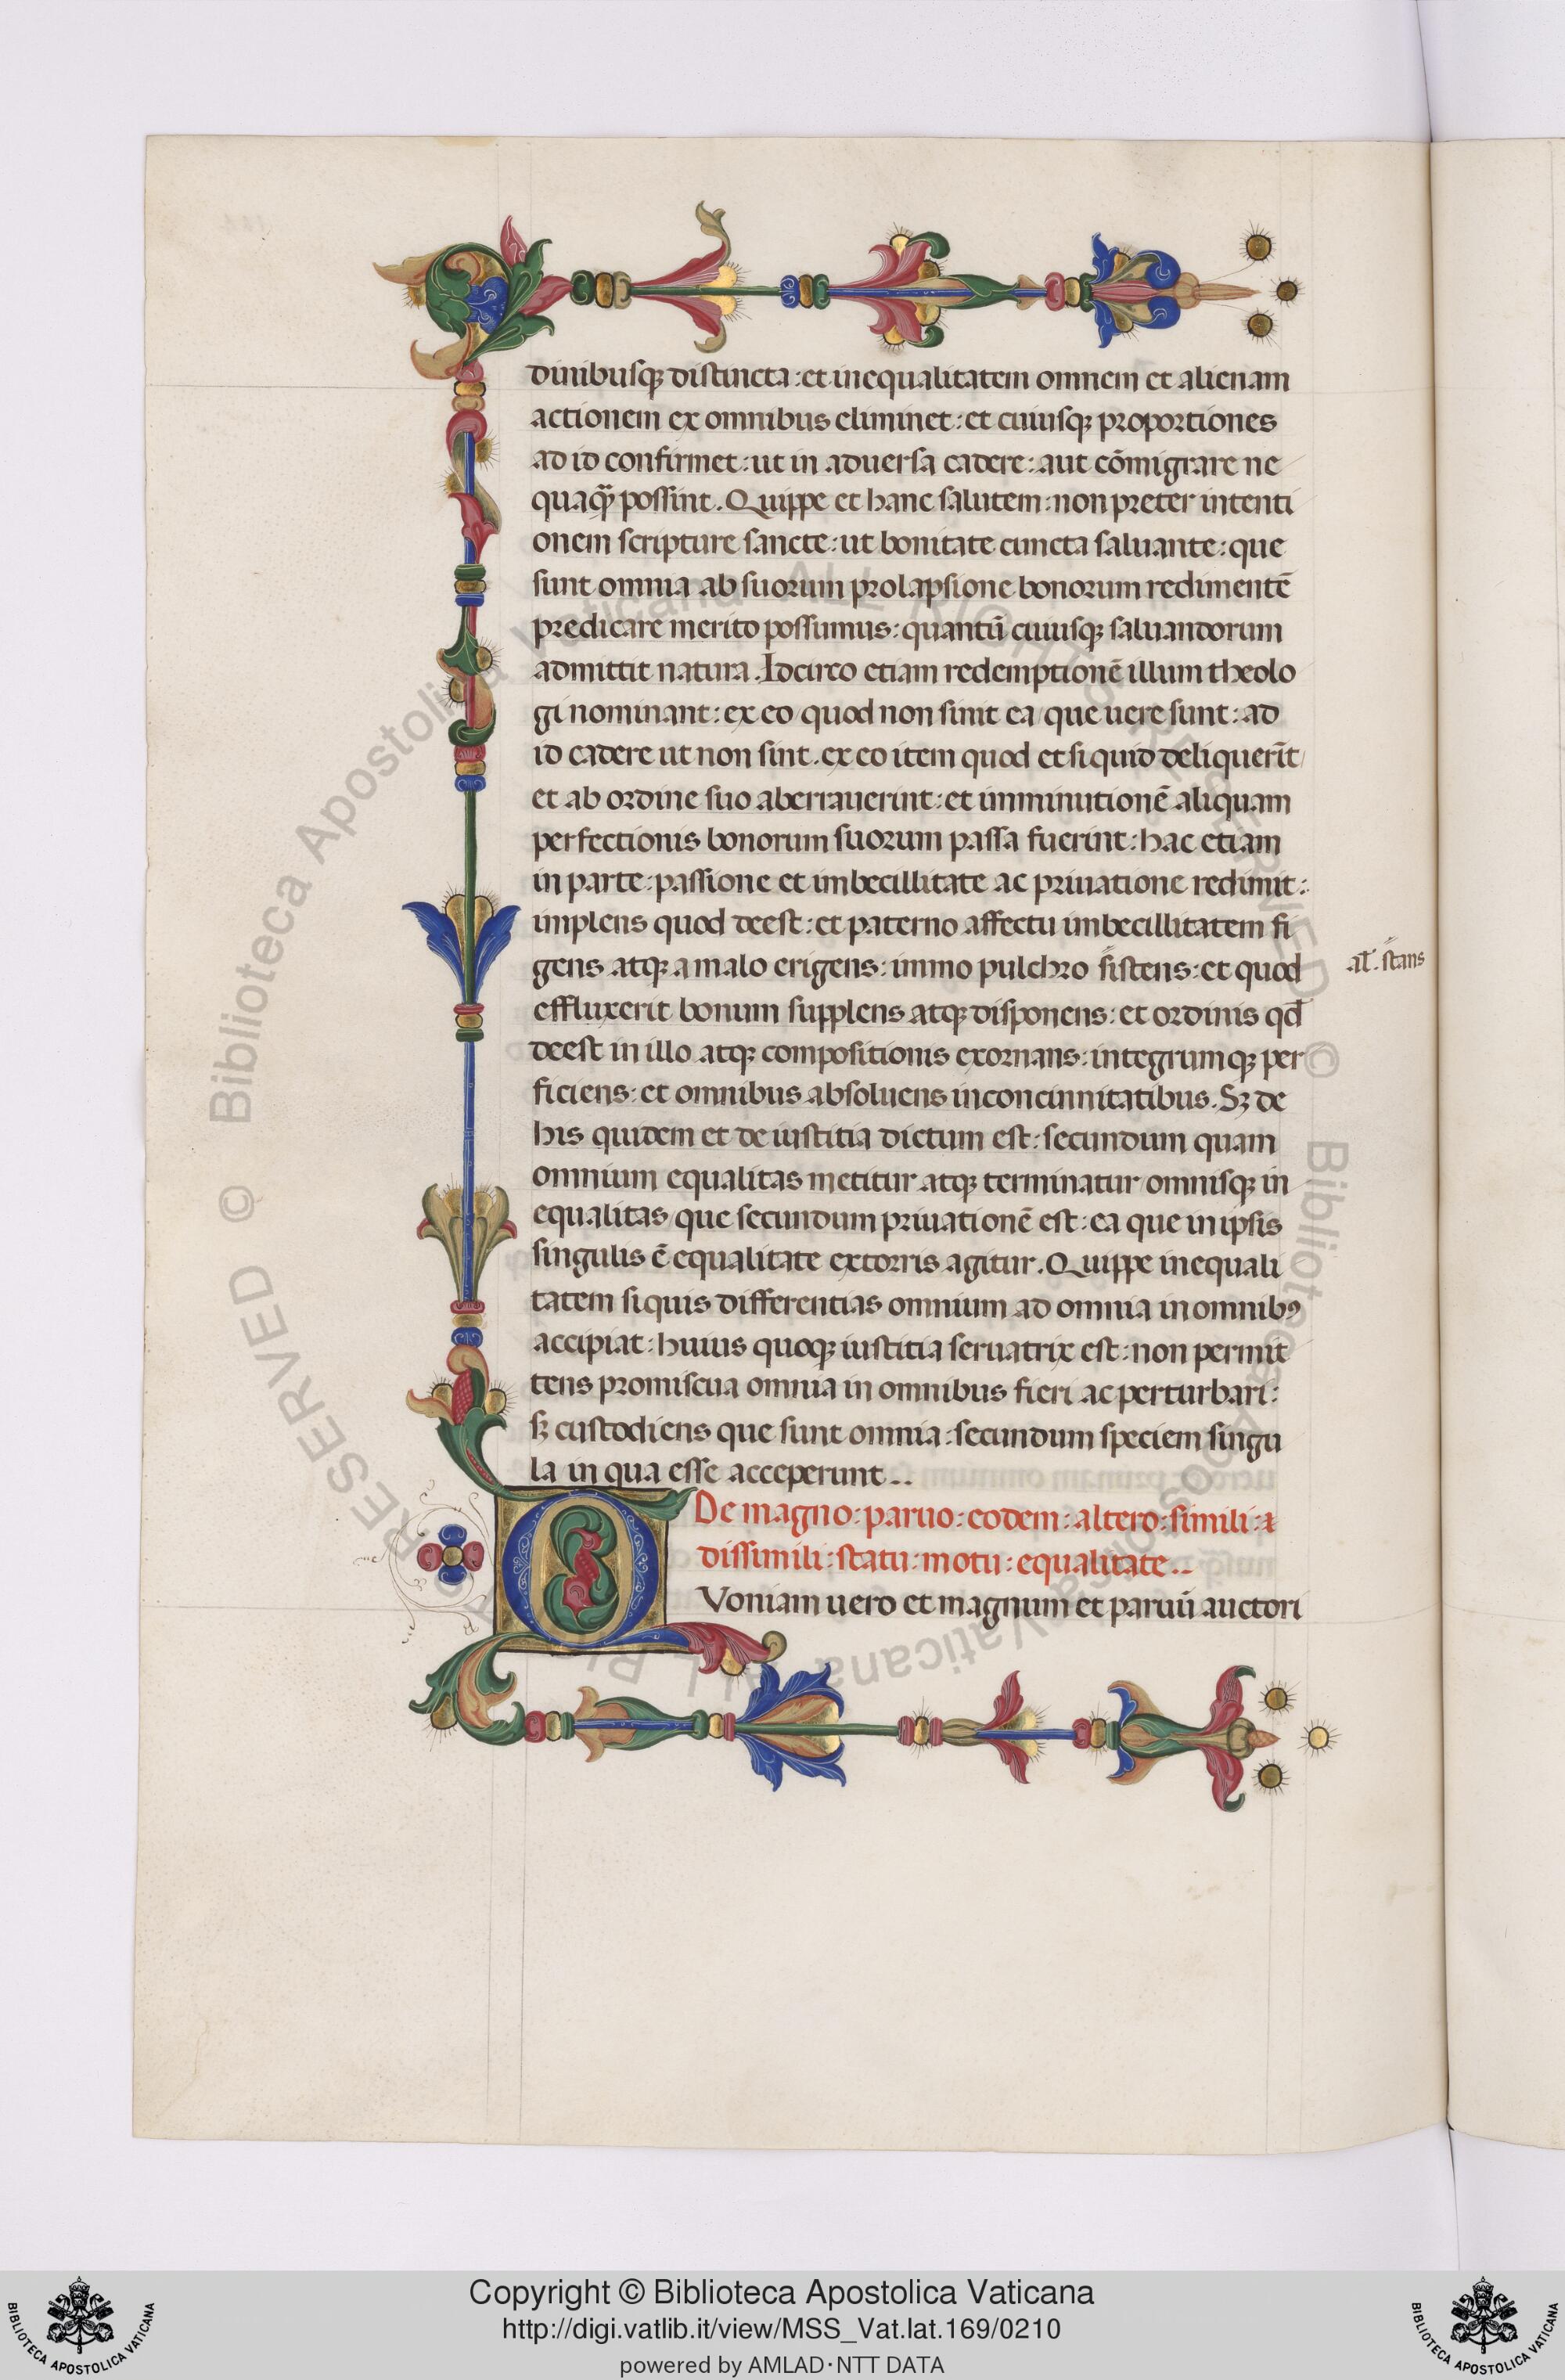 dinibusqꝫ distincta: et inequalitatem omnem et alienam
actionem ex omnibus eliminet: et cuiusqꝫ proportiones
ad id confirmet: ut in aduersa cadere: aut cōmigrare ne
quaqꝫ̃ possint. Quippe et hanc salutem: non preter intenti
onem scripture sancte: ut bonitate cuncta saluante: que
sunt omnia ab suorum prolapsione bonorum redimentē
predicare merito possumus: quantū cuiusqꝫ saluandorum
admittit natura. Idcirco etiam redemptionē illum theolo
gi nominant: ex eo quod non sinit ea/que uere sunt: ad
id cadere ut non sint. ex eo item quod et si quid deliquerīt/
et ab ordine suo aberrauerint: et imminutionē aliquam
perfectionis bonorum suorum passa fuerint: hac etiam
in parte: passione et imbecillitate ac priuatione redimit:
implens quod deest: et paterno affectu imbecillitatem fi
gens atqꝫ a malo erigens: immo pulchro sistens: et quod
al̄. stans
effluxerit bonum supplens atqꝫ disponens: et ordinis qd̄
deest in illo atqꝫ compositionis exornans: integrumqꝫ per
ficiens: et omnibus absoluens inconcinnitatibus. Sꝫ de
his quidem et de iustitia dictum est: secundum quam
omnium equalitas metitur atqꝫ terminatur/omnisqꝫ in
equalitas/que secundum priuationē est: ea que in ipsis
singulis ē equalitate extorris agitur. Quippe inequali
tatem si quis differentias omnium ad omnia in omnibꝯ
accipiat: huius quoqꝫ iustitia seruatrix est: non permit
tens promiscua omnia in omnibus fieri ac perturbari:
sꝫ custodiens que sunt omnia: secundum speciem singu
la in qua esse acceperunt..
De magno: paruo: eodem: altero: simili: ⁊
dissimili: statu: motu: equalitate..
QVoniam uero et magnum et paruū auctori
Copyright © Biblioteca Apostolica Vaticana
http://digi.vatlib.it/view/MSS_Vat.lat.169/0210
powered by AMLAD·NTT DATA
BIBLIOTECA APOSTOLICA VATICANA
BIBLIOTECA APOSTOLICA VATICANA
© Biblioteca Apostolica Vaticana ALL RIGHTS RESERVED © Biblioteca Apostolica Vaticana ALL RIGHTS RESERVED